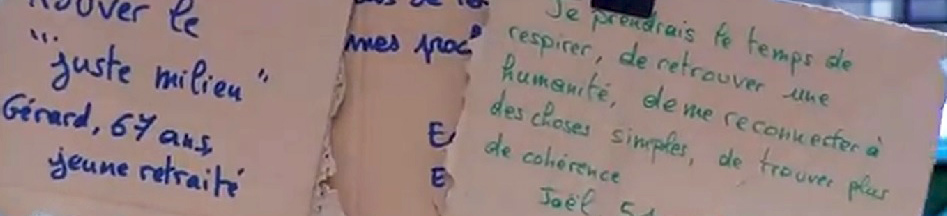 le
"juste milieu"
Gérard, 67 ans,
jeune retraité
mes proc
E
E
Je prendrais le temps de
respirer, de retrouver une
humanité, de me reconnecter à
des choses simples, de trouver plus
de cohérence
Joël